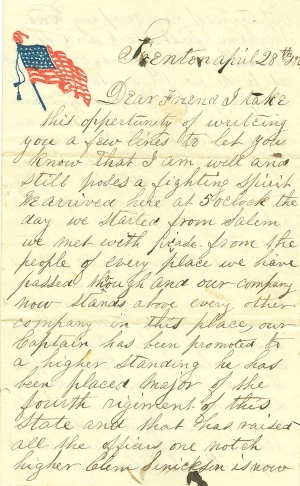 Trenton april 28th
Dear Friend I take
this oppertunity of writeing
you a few lines to let you
know that I am well and
still poses a fighting spirit
we arrived here at 5 oclock the
day we started from Salem
we met with praise from the
people of every place we have
passed though and our company
now stands above every other
company in this place, our
Captain has been promoted to
a higher standing he has
been placed Major of the
fourth rigiment of this
State and that has raised
all the officers one notch
higher Clem Sinickson is now